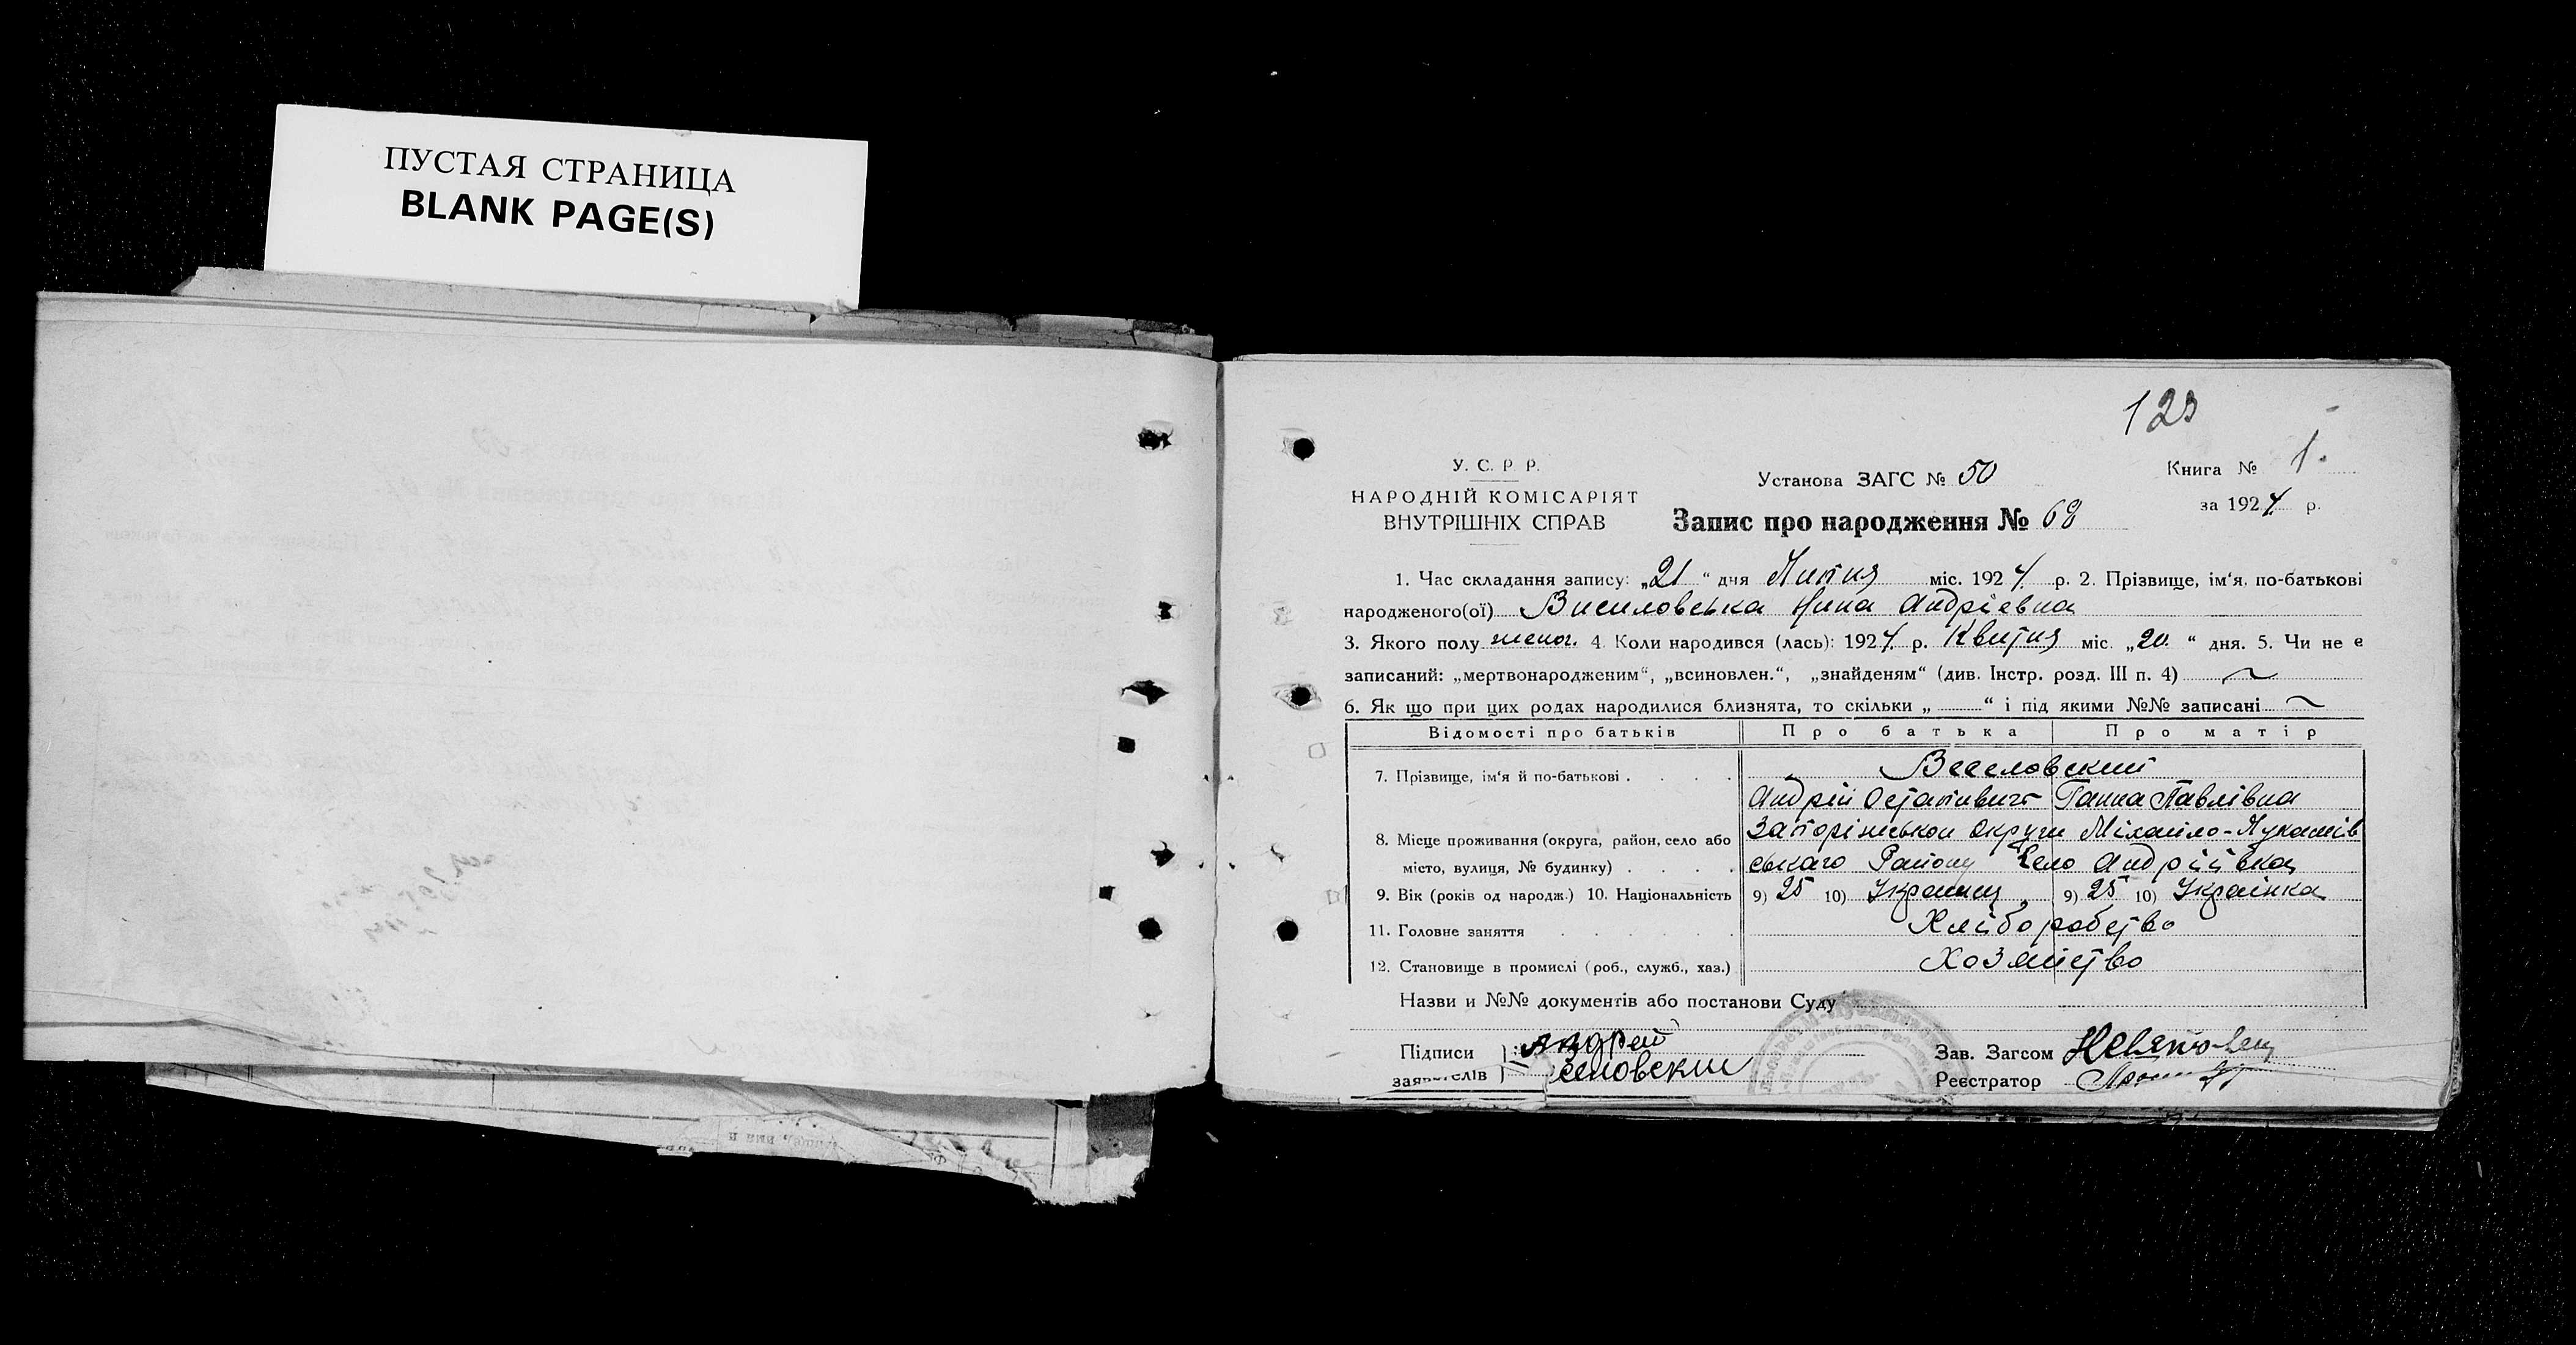 ПУСТАЯ СТРАНИЦА
BLANK PAGE(S)
123
У. С. Р. Р.
НАРОДНІЙ КОМІСАРІЯТ
ВНУТРІШНІХ СПРАВ
Установа ЗАГС № 50
Запис про народження № 68
Книга № 1.
за 1924 р.
1. Час складання запису: „21 “ дня Липня міс. 1924 р. 2. Прізвище, ім‘я, по-батькові
народженого(ої) Виселовська Нина Андріевна
3. Якого полу женог. 4. Коли народився (лась): 1924 р. Квитня міс. „20. “ дня. 5. Чи не є
записаний: „мертвонародженим“, „всиновлен.“, „знайденям“ (див. Інстр. розд. III п. 4)
6. Як що при цих родах народилися близнята, то скільки „ “ і під якими №№ записані
Відомості про батьків Про батька Про матір
7. Прізвище, ім‘я й по-батькові . . . . Веселовский
Андрій Остапивич Ганна Павлівна
8. Місце проживання (округа, район, село або Запоріжськои Округи Міхайло-Лукашів
місто, вулиця, № будинку) . . . . ськаго Району Село Андріївка
9. Вік (років од народж.) 10. Національність 9) 25 10) Украинец 9) 25 10) Українка
11. Головне заняття . . . . . . Хлиборобство
12. Становище в промислі (роб., служб., хаз.) Хозяйство
Назви и №№ документів або постанови Суду
Підписи Андрей
заявителів Веселовский
Зав. Загсом
Реєстратор